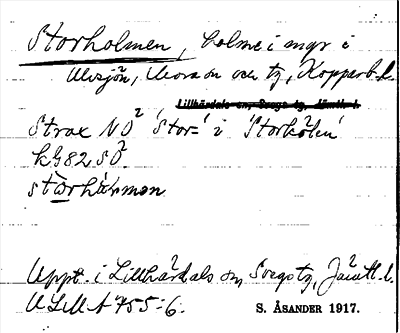 Storholmen, holme i myr i
Älvsjön, Mora sn och tg, Kopparb. l.
Lillhärdals sn, Svegs tg, Jämtl. l.
Strax NO 'Stor-' i 'Storkölen'
kG82 SO
stärhårmen
Uppt. i Lillhärdals sn, Svegs tg, Jämtl. l.
ULMA 755:6.
S. ÅSANDER 1917.